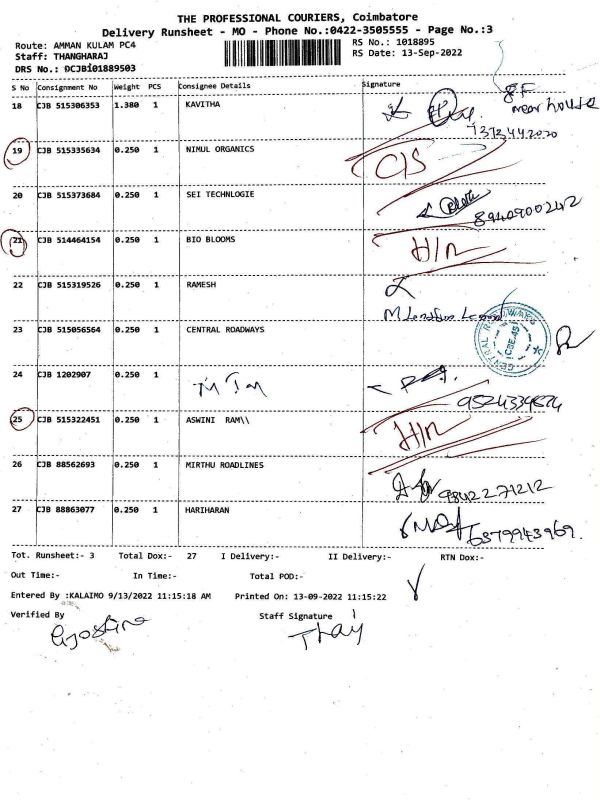 THE PROFESSIONAL COURIERS, Coimbatore
Delivery Runsheet - MO - Phone No.:0422-3505555 - Page No.:3
Route: AMMAN KULAM PC4 RS No.: 1018895
Staff: THANGHARAJ RS Date: 13-Sep-2022
DRS No.: DCJB101889503
S No Consignment No Weight PCS Consignee Details Signature
8F
near house
18 CJB 515306353 1.380 1 KAVITHA
7372442020
19 CJB 515335634 0.250 1 NIMUL ORGANICS
20 CJB 515373684 0.250 1 SEI TECHNLOGIE
8940900242
21 CJB 514464154 0.250 1 BIO BLOOMS H/R
22 CJB 515319526 0.250 1 RAMESH
23 CJB 515056564 0.250 1 CENTRAL ROADWAYS
CENTRAL ROADWAYS
CBE.45
24 CJB 1202907 0.250 1
9524334574
25 CJB 515322451 0.250 1 ASWINI RAM\\ H/R
26 CJB 88562693 0.250 1 MIRTHU ROADLINES
9842271212
27 CJB 88863077 0.250 1 HARIHARAN
6379943969.
Tot. Runsheet:- 3 Total Dox:- 27 I Delivery:- II Delivery:- RTN Dox:-
Out Time:- In Time:- Total POD:-
Entered By :KALAIMO 9/13/2022 11:15:18 AM Printed On: 13-09-2022 11:15:22
Verified By Staff Signature